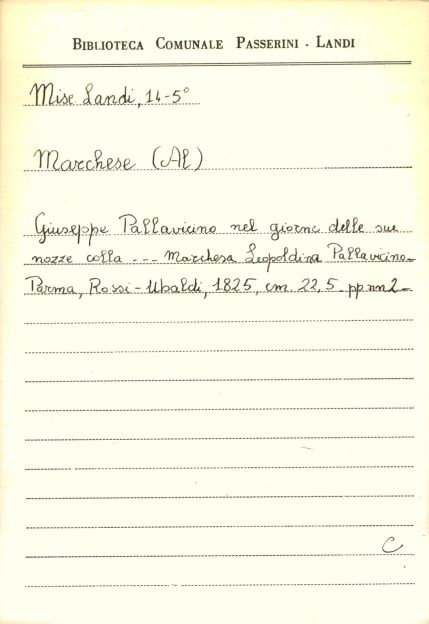 BIBLIOTECA COMUNALE PASSERINI - LANDI
Misc Landi, 14-5°
Marchese (Al)
Giuseppe Pallavicino nel giorno delle sue
nozze colla --- Marchesa Leopoldina Pallavicino-
Parma, Rossi-Ubaldi, 1825, cm. 22,5 - pp nn 2-
C